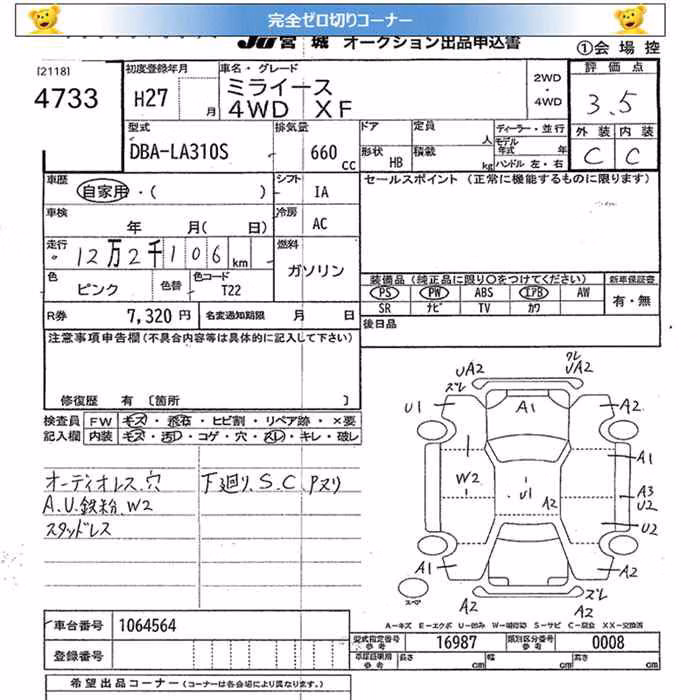 完全ゼロ切りコーナー
JU宮城 オークション出品申込書 ①会場控
[2118]
4733
初度登録年月 H27 月
車名・グレード ミライース 4WD XF
2WD・4WD
評価点 3.5
外装 内装
C C
型式 DBA-LA310S
排気量 660 cc
ドア 形状 HB
定員 人 積載 kg
ディーラー・並行
モデル年式 年
ハンドル 左・右
車歴 自家用・( )
シフト IA
セールスポイント (正常に機能するものに限ります)
車検 年 月( 日)
冷房 AC
走行 12万2千106km
燃料 ガソリン
色 ピンク 色替 色コード T22
装備品 (純正品に限り○をつけてください) 新車保証書
PS PW ABS エアB AW 有・無
SR ナビ TV カワ
R券 7,320円 名変通知期限 月 日
後日品
注意事項申告欄 (不具合内容等は具体的に記入して下さい)
修復歴 有 〔箇所 〕
検査員 FW キズ・飛石・ヒビ割・リペア跡・×要
記入欄 内装 キズ・汚レ・コゲ・穴・スレ・キレ・破レ
オーディオレス.穴 下廻り.S.C.Pヌリ
A.U.鉄粉.W2
スタッドレス
UA2 クレ UA2
ズレ
U1 A1 A2
A1
W2 U1 A2 A3 U2
U2
A1 A2
スペア
A2 ズレ A2
A-キズ E-エクボ U-凹み W-補修跡 S-サビ C-腐食 XX-交換済
車台番号 1064564
型式指定番号 参考 16987 類別区分番号 参考 0008
登録番号
車庫証明用 参考 長さ cm 幅 cm 高さ cm
希望出品コーナー (コーナーは各会場により異なります。)